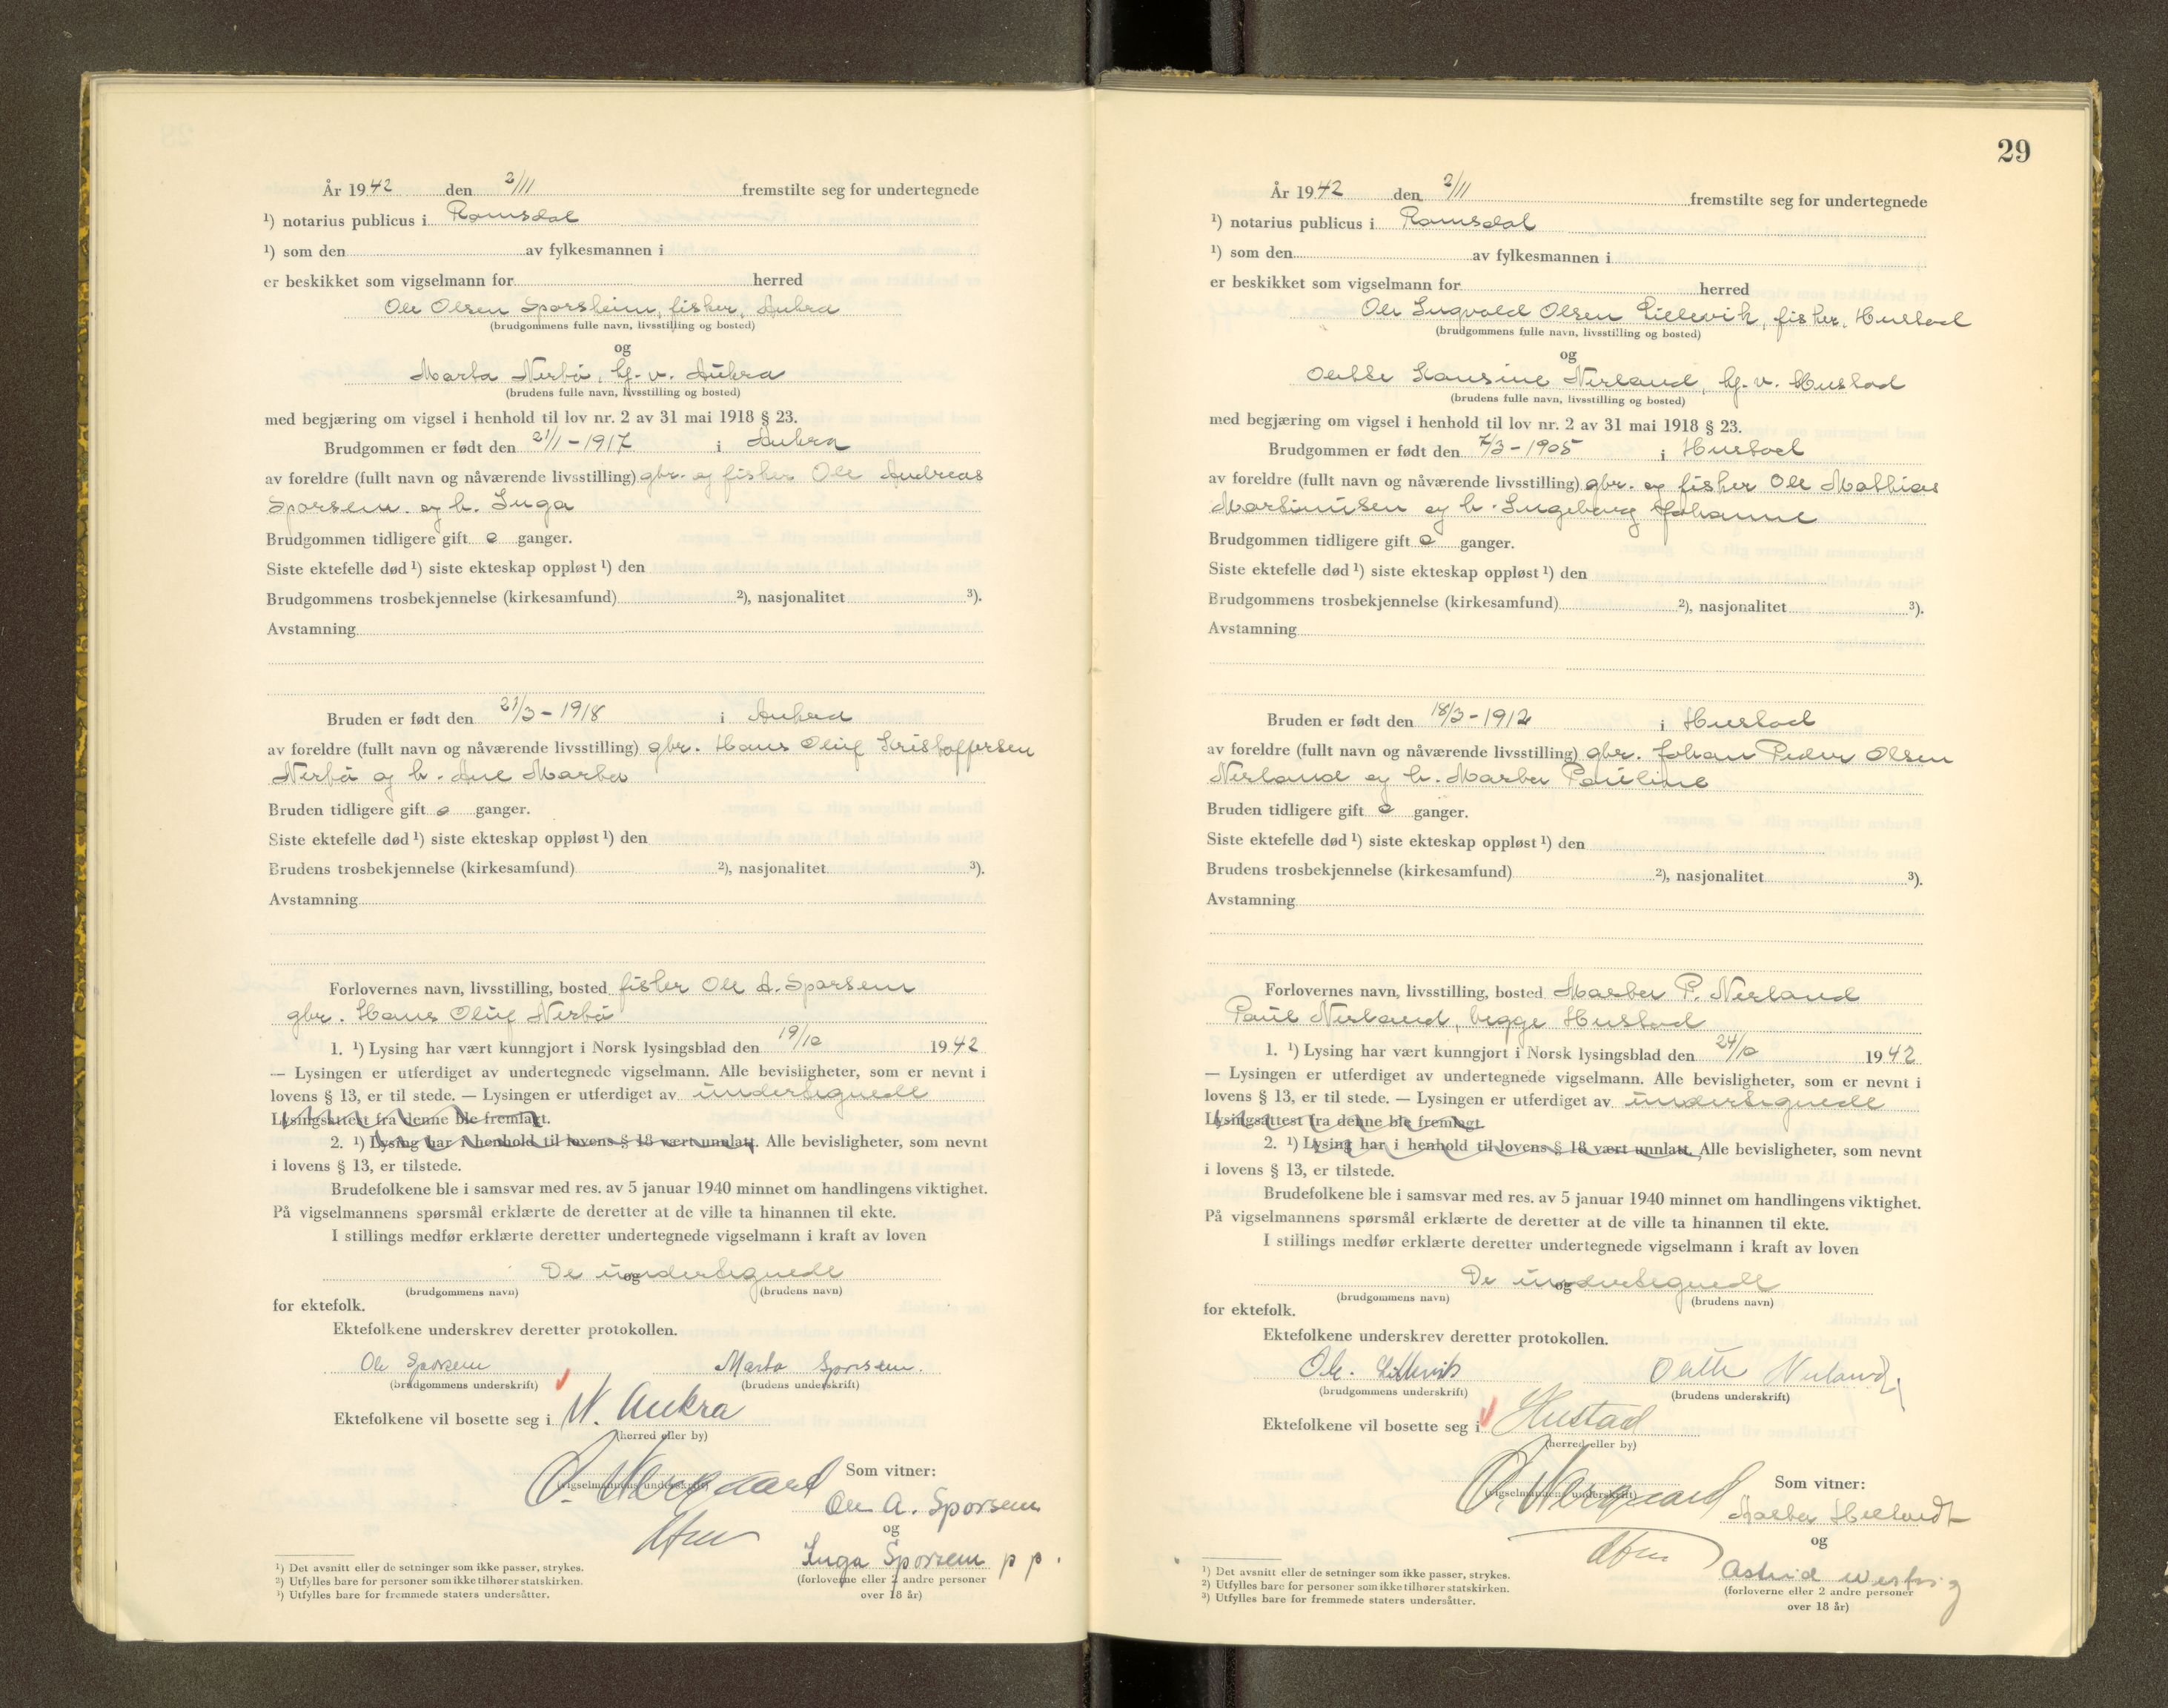 År 1942 den 2/11 fremstilte seg for undertegnede
¹) notarius publicus i Romsdal
¹) som den av fylkesmannen i
er beskikket som vigselmann for herred
Ole Olsen Sporsheim, fisker, Aukra
(brudgommens fulle navn, livsstilling og bosted)
og
Marta Nerbö, hj. v. Aukra
(brudens fulle navn, livsstilling og bosted)
med begjæring om vigsel i henhold til lov nr. 2 av 31 mai 1918 § 23.
Brudgommen er født den 21/1-1917 i Aukra
av foreldre (fullt navn og nåværende livsstilling) gbr. og fisker Ole Andreas
Sporsem og h. Inga
Brudgommen tidligere gift 0 ganger.
Siste ektefelle død ¹) siste ekteskap oppløst ¹) den
Brudgommens trosbekjennelse (kirkesamfund) ²), nasjonalitet ³).
Avstamning
Bruden er født den 21/3-1918 i Aukra
av foreldre (fullt navn og nåværende livsstilling) gbr. Hans Oluf Kristoffersen
Nerbö og h. Ane Marta
Bruden tidligere gift 0 ganger.
Siste ektefelle død ¹) siste ekteskap oppløst ¹) den
Brudens trosbekjennelse (kirkesamfund) ²), nasjonalitet ³).
Avstamning
Forlovernes navn, livsstilling, bosted fisker Ole A. Sporsem
gbr. Hans Oluf Nerbö
1. ¹) Lysing har vært kunngjort i Norsk lysingsblad den 19/10 1942
— Lysingen er utferdiget av undertegnede vigselmann. Alle bevisligheter, som er nevnt i
lovens § 13, er til stede. — Lysingen er utferdiget av undertegnede
Lysingsattest fra denne ble fremlagt.
2. ¹) Lysing har i henhold til lovens § 18 vært unnlatt. Alle bevisligheter, som nevnt
i lovens § 13, er tilstede.
Brudefolkene ble i samsvar med res. av 5 januar 1940 minnet om handlingens viktighet.
På vigselmannens spørsmål erklærte de deretter at de ville ta hinannen til ekte.
I stillings medfør erklærte deretter undertegnede vigselmann i kraft av loven
De undertegnede
og
(brudgommens navn) (brudens navn)
for ektefolk.
Ektefolkene underskrev deretter protokollen.
Ole Sporsem Marta Sporsem.
(brudgommens underskrift) (brudens underskrift)
Ektefolkene vil bosette seg i N. Aukra
(herred eller by)
Som vitner:
(vigselmannens underskrift)
Ole A. Sporsem
og
Inga Sporsem p p.
(forloverne eller 2 andre personer
over 18 år)
¹) Det avsnitt eller de setninger som ikke passer, strykes.
²) Utfylles bare for personer som ikke tilhører statskirken.
³) Utfylles bare for fremmede staters undersåtter.
29
År 1942 den 2/11 fremstilte seg for undertegnede
¹) notarius publicus i Romsdal
¹) som den av fylkesmannen i
er beskikket som vigselmann for herred
Ole Ingvald Olsen Lillevik, fisker, Hustad
(brudgommens fulle navn, livsstilling og bosted)
og
Hansine Nerland, hj. v. Hustad
(brudens fulle navn, livsstilling og bosted)
med begjæring om vigsel i henhold til lov nr. 2 av 31 mai 1918 § 23.
Brudgommen er født den 7/3-1905 i Hustad
av foreldre (fullt navn og nåværende livsstilling) gbr. og fisker Ole Mathias
Martinusen og h. Ingeborg Johanne
Brudgommen tidligere gift 0 ganger.
Siste ektefelle død ¹) siste ekteskap oppløst ¹) den
Brudgommens trosbekjennelse (kirkesamfund) ²), nasjonalitet ³).
Avstamning
Bruden er født den 18/3-1912 i Hustad
av foreldre (fullt navn og nåværende livsstilling) gbr. Johan Peder Olsen
Nerland og h. Marta Pauline
Bruden tidligere gift 0 ganger.
Siste ektefelle død ¹) siste ekteskap oppløst ¹) den
Brudens trosbekjennelse (kirkesamfund) ²), nasjonalitet ³).
Avstamning
Forlovernes navn, livsstilling, bosted Marta P. Nerland
Paul Nerland, begge Hustad
1. ¹) Lysing har vært kunngjort i Norsk lysingsblad den 24/10 1942
— Lysingen er utferdiget av undertegnede vigselmann. Alle bevisligheter, som er nevnt i
lovens § 13, er til stede. — Lysingen er utferdiget av undertegnede
Lysingsattest fra denne ble fremlagt.
2. ¹) Lysing har i henhold til lovens § 18 vært unnlatt. Alle bevisligheter, som nevnt
i lovens § 13, er tilstede.
Brudefolkene ble i samsvar med res. av 5 januar 1940 minnet om handlingens viktighet.
På vigselmannens spørsmål erklærte de deretter at de ville ta hinannen til ekte.
I stillings medfør erklærte deretter undertegnede vigselmann i kraft av loven
De undertegnede
og
(brudgommens navn) (brudens navn)
for ektefolk.
Ektefolkene underskrev deretter protokollen.
Ole. Lillevik Nerland
(brudgommens underskrift) (brudens underskrift)
Ektefolkene vil bosette seg i Hustad
(herred eller by)
Som vitner:
(vigselmannens underskrift)
og
Astrid
(forloverne eller 2 andre personer
over 18 år)
¹) Det avsnitt eller de setninger som ikke passer, strykes.
²) Utfylles bare for personer som ikke tilhører statskirken.
³) Utfylles bare for fremmede staters undersåtter.